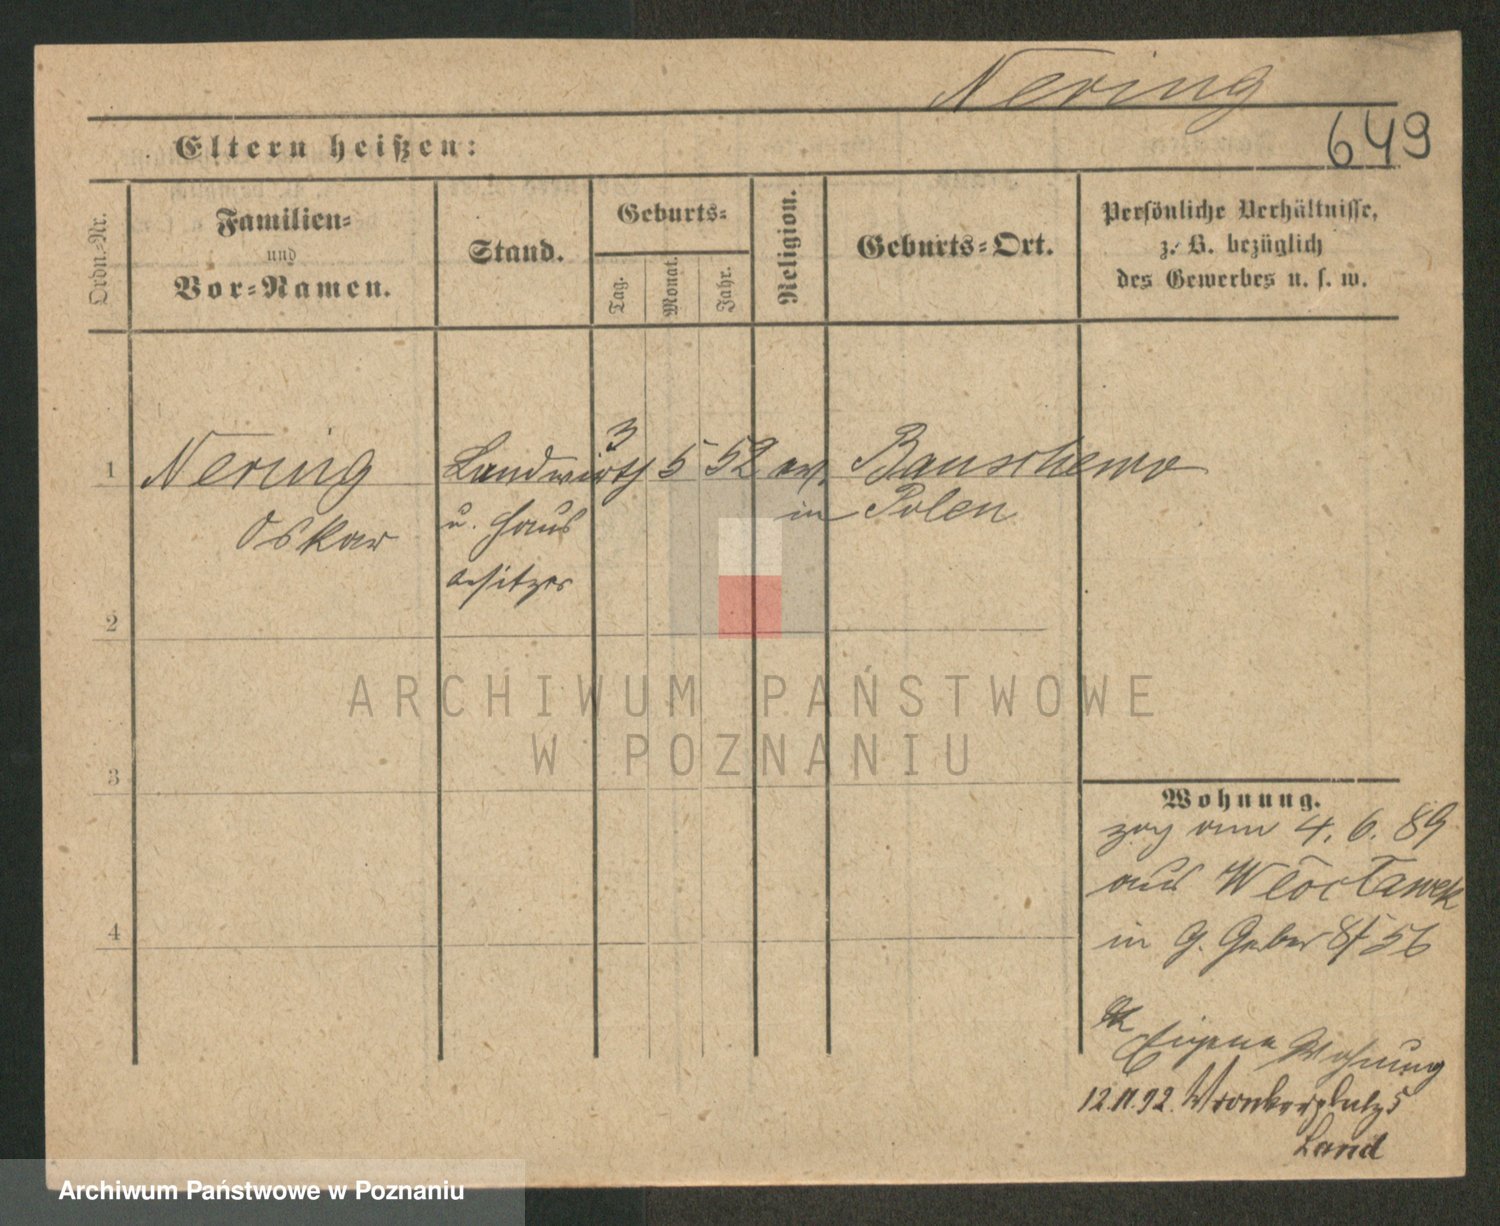 Nering
649
Eltern heißen:
Ordn.-Nr.
Familien-
und
Vor-Namen.
Stand.
Geburts-
Tag.
Monat.
Jahr.
Religion.
Geburts-Ort.
Persönliche Verhältnisse,
z. B. bezüglich
des Gewerbes u. s. w.
1
Nering
Oskar
Landwirth
u. Haus
besitzer
3 5 52
ev.
in Polen
2
3
4
Wohnung.
zog am 4. 6. 89
aus Włocławek
in
56
Eigene Wohnung
12.11.92. Wronkerplatz 5
Land
ARCHIWUM PAŃSTWOWE
W POZNANIU
Archiwum Państwowe w Poznaniu